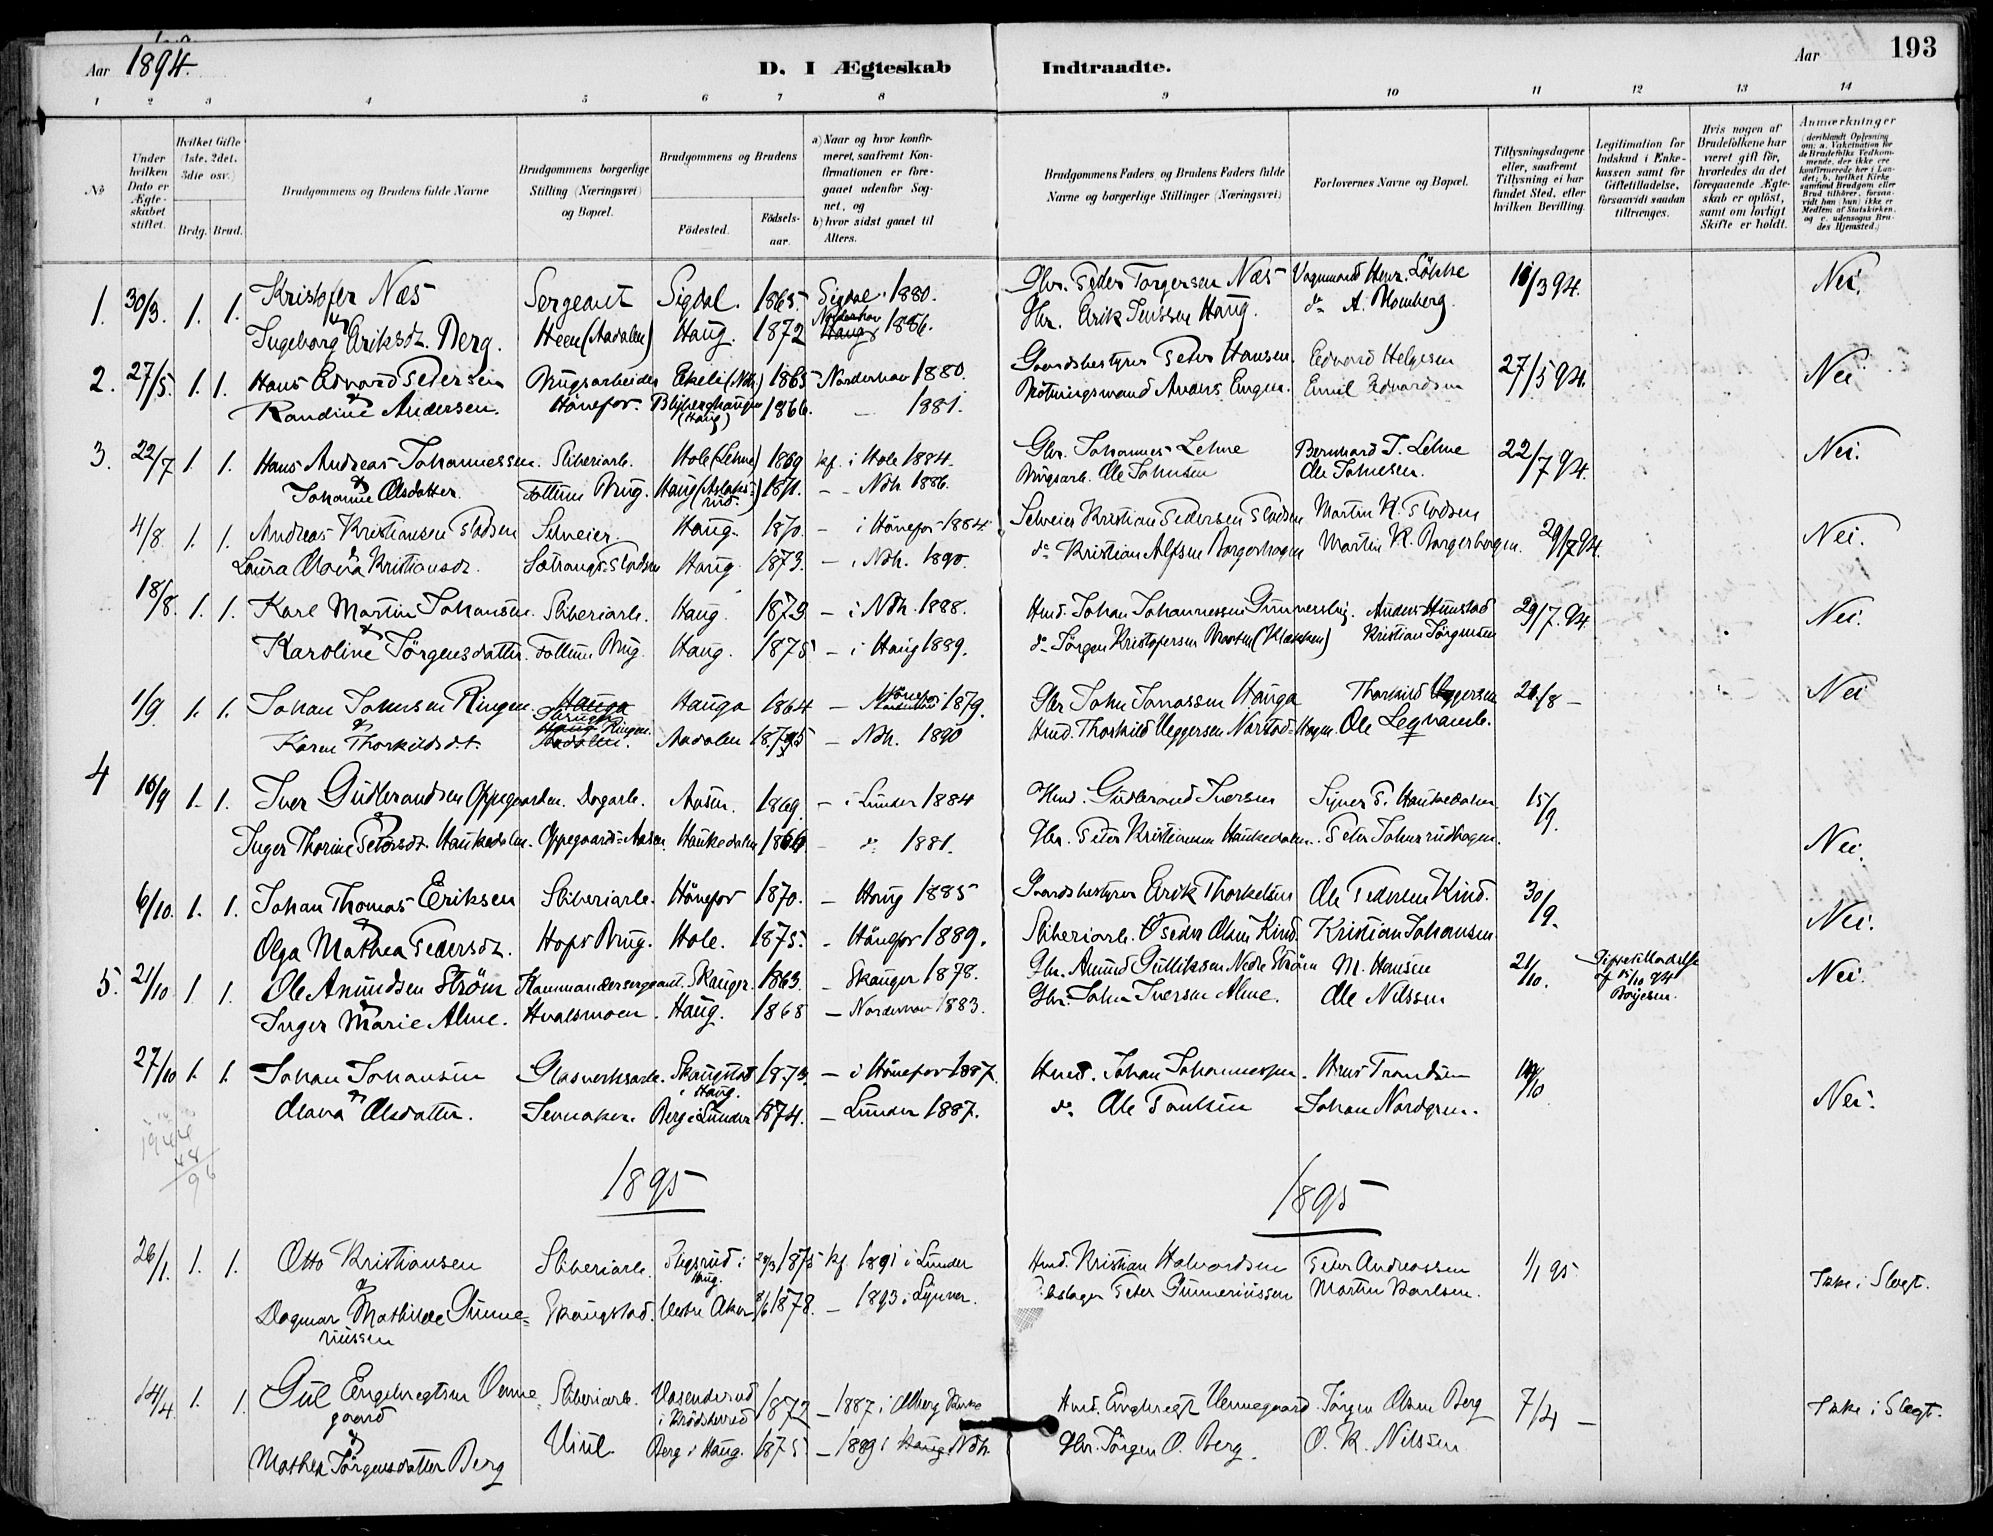 Aar 1894. D. I Ægteskab Indtraadte. Aar 193
1 2 3 4 5 6 7 8 9 10 11 12 13 14
No
Under hvilken Dato er Ægteskabet stiftet.
Hvilket Gifte (1ste, 2det, 3die osv.)
Brdg. Brud.
Brudgommens og Brudens fulde Navne
Brudgommens borgerlige Stilling (Næringsvei) og Bopæl.
Brudgommens og Brudens
Fødested. Fødselsaar.
a) Naar og hvor konfirmeret, saafremt Konfirmationen er foregaaet udenfor Sognet, og
b) hvor sidst gaaet til Alters.
Brudgommens Faders og Brudens Faders fulde Navne og borgerlige Stillinger (Næringsvei)
Forlovernes Navne og Bopæl.
Tillysningsdagene eller, saafremt Tillysning ei har fundet Sted, efter hvilken Bevilling.
Legitimation for Indskud i Enkekassen samt for Giftetilladelse, forsaavidt saadan tiltrænges.
Hvis nogen af Brudefolkene har været gift før, hvorledes da det foregaaende Ægteskab er opløst, samt om lovligt Skifte er holdt.
Anmærkninger (deriblandt Oplysning om: a. Vakcination for de Brudefolks Vedkommende, der ikke ere konfirmerede her i Landet; b. hvilket Kirkesamfund Brudgom eller Brud tilhører, forsaavidt han (hun) ikke er Medlem af Statskirken, og c. udensogns Brudes Hjemsted.)
1. 30/3. 1. 1. Kristofer Næs Sergeant Sigdal. 1865. Sigdal 1880. Gbr. Peder Torgersen Næs Vognmand Henr. Løkke 11/3 94. Nei.
& Ingeborg Eriksdt. Berg. Heen (Aadalen) Haug. 1872 Norderhov 1886. Gbr. Erik Jenssen Haug. do A. Homberg.
2. 27/5. 1. 1. Hans Edvard Pedersen Brugsarbeider Ekeli (Ndh.) 1865 Norderhov 1880. Gaardsbestyrer Peter Hansen. Edvard Helgesen 27/5 94. Nei
& Randine Andersen. Hønefos. (Haug) 1866. — 1881. Anders Engen. Emil Edvardsen
3. 22/7 1. 1. Hans Andreas Johannessen. Sliberiarb. Hole (Lehne) 1869 kf. i Hole 1884. Gbr. Johannes Lehne Bernhard J. Lehne 22/7 94. Nei.
& Johanne Olsdatter. Follum Brug. Haug (Aslaksrud.) 1871. - - Ndh 1886. Brugsarb. Ole Johnsen Ole Johnsen.
4/8 1. 1. Andreas Kristiansen Pladsen Selveier. Haug. 1870. — i Hønefos 1884. Selveier Kristian Pedersen Pladsen Martin K. Pladsen 29/7 94. Nei.
& Laura Olava Kristiansdt. Sætrangs-Pladsen Haug 1873. — i Ndh. 1890. do Kristian Alfsen Borgerhagen Martin K. Borgerhagen.
18/8. 1. 1. Karl Martin Johansen. Sliberiarb. Haug. 1872 — i Ndh. 1888. Hmd. Johan Johannessen Anders Hunstad 29/7. 94. Nei.
& Karoline Jørgensdatter. Follum Brug. Haug. 1875 — i Haug 1889. do Jørgen Kristofersen Kristian Jørgensen
1/9 1. 1. Johan Johnsen Ringen. Hauga 1864 — Hønefos 1879. Gbr John Jonassen Hauga Thorkild Veggersen 26/8 — Nei
& Karen Thorkildsdt. Ringen. Aadalen 1875 — Ndh. 1890 Hmd. Thorkild Veggersen Ole
4 16/9 1. 1. Iver Gudbrandsen Oppegaarden. Dagarb. Aasen. 1869. — i Lunder 1884 Hmd. Gudbrand Iversen Syver P. Haukedalen 15/9.
& Inger Thorine Petersdt. Haukedalen. Oppegaards-Aasen Haukedalen 1866. - do 1881. Gbr. Peter Kristiansen Haukedalen. Peter Johnsrudhagen. Nei.
6/10. 1. 1. Johan Thomas Eriksen Sliberiarb. Hønefos 1870. — Haug 1885 Gaardsbestyrer Erik Thorkelsen Ole Pedersen Kind. 30/9. Nei.
& Olga Mathea Pedersdt. Hofs Brug. Hole. 1875. - Hønefos 1889. Sliberiarb. Peder Olsen Kind. Kristian Johansen.
5. 21/10 1. 1. Ole Amundsen Strøm Kommandersergeant. Skauger. 1863. — Skauger 1878. Gbr. Amund Gulliksen Nedre Strøm M. Hansen 21/10. Giftetilladelse af 5/10 94 Nei.
& Inger Marie Alme. Hvalsmoen. Haug. 1868 — Norderhov 1883. Gbr. John Iversen Alme. Ole Nilssen
27/10 1. 1. Johan Johansen Glasverksarb. Skaugstad i Haug. 1873. — i Hønefos 1887. Hmd. Johan Johannessen. Hans Trondsen 14/10 Nei.
& Olava Olsdatter. Semaker. Berg i Lunder 1874. — Lunder 1887. do Ole Paulsen Johan Nordgren.
1895 1895
26/1. 1. 1. Otto Kristiansen Sliberiarb. i Haug. 1875 kf. 1891 i Lunder Hmd. Kristian Halvordsen Peter Andreassen 1/1 95. Ikke i Slægt.
& Dagmar Mathilde Gunneriussen Skaugstad. Vestre Aker 8/6 1878. — 1893 i Lunder. Peter Gunneriussen Martin Karlsen.
14/4 1. 1. Gul Engebregtsen Vennegaard Sliberiarb. i Krødsherred 1872 — 1887 i Olberg Kirke Hmd. Engebregt Vennegaard Jørgen Olsen Berg 7/4 — Ikke i Slægt.
& Mathea Jørgensdatter Berg Viul Berg i Haug. 1875 — 1889 i Haug Ndh. Gbr. Jørgen O. Berg. O. K. Nilssen